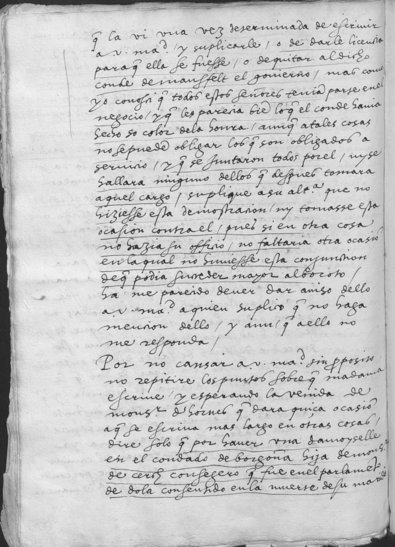 q̃ la vi una vez determinada de escrivir
a v. mad y suplicarle / o de darle licencia
para q̃ ella se fuesse / o de quitar al dicho
conde de mansfelt el govierno / mas como
yo conosci q̃ todos estos señores tenian parte en el
negocio / y q̃ les parescia bien lo q̃ el conde havia
hecho so color dela honra / aunq̃ a tales cosas
no se pueden obligar los q̃ son obligados a
servicio / y q̃ se juntaron todos por el / ny se
hallara ninguno dellos q̃ despues tomara
aquel cargo / suplique a su alta que no
hiziesse esta demostracion / ny tomasse esta
ocasion contra el / pues si en otra cosa
no hazia su officio / no faltaria otra ocasion
en la qual no huviesse esta conjunction
de q̃ podia suceder mayor alboroto /
ha me parecido dever dar aviso dello
a v. mad a quien suplico q̃ no haga
mencion dello / y aun q̃ a ello no
me responda /
Por no cansar a v. mad sin proposito
no repitire los puntos sobre q̃ madama
escrive / y esperando la venida de
monsr de hornes q̃ dara quiça ocasion
a q̃ se escriva mas largo en otras cosas /
dire solo q̃ por haver una damoyselle
en el condado de borgoña hija de monsr
de consegero q̃ fue en el parlamento
de dola consentido en la muerte de su marido